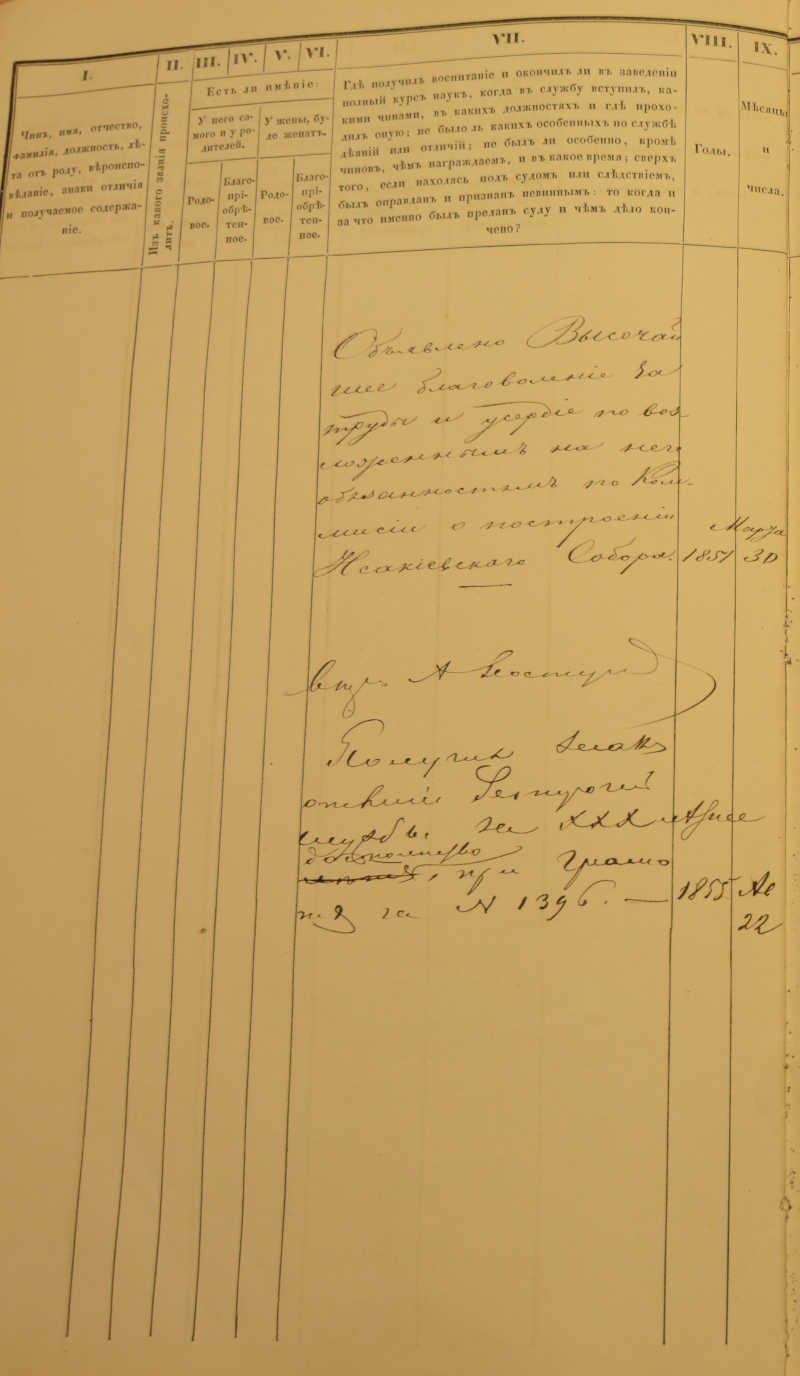 I.
II.
III.
IV.
V.
VI.
VII.
VIII.
IX.
Чинъ, имя, отчество,
фамилія, должность, лѣ-
та отъ роду, вѣроиспо-
вѣданіе, знаки отличія
и получаемое содержа-
ніе.
Изъ какого званія происхо-
дитъ.
Есть ли имѣніе:
У него са-
мого и у ро-
дителей.
У жены, бу-
де женатъ.
Родо-
вое.
Благо-
прі-
обрѣ-
тен-
ное.
Родо-
вое.
Благо-
прі-
обрѣ-
тен-
ное.
Гдѣ получилъ воспитаніе и окончилъ ли въ заведеніи
полный курсъ наукъ, когда въ службу вступилъ, ка-
кими чинами, въ какихъ должностяхъ и гдѣ прохо-
дилъ оную; не было ль какихъ особенныхъ по службѣ
дѣяній или отличій; не былъ ли особенно, кромѣ
чиновъ, чѣмъ награждаемъ, и въ какое время; сверхъ
того, если находясь подъ судомъ или слѣдствіемъ,
былъ оправданъ и признанъ невиннымъ: то когда и
за что именно былъ преданъ суду и чѣмъ дѣло кон-
чено?
Годы.
Мѣсяцы
и
числа.
Объявлено Высочай
шее благоволеніе за
труды и усердіе по воз
ложеннымъ на него
обязанностямъ по Ком
мисіи о построеніи
Исакіевскаго Собора. 1851 Марта 30
А
Получил знак
отличія безпорочной
службы, за XXX лѣтнее
достоинство
при Грамо
тѣ за N 1396. — 1855 Ав
22